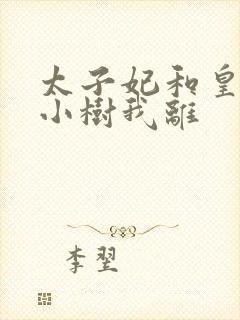 太子妃和皇
小樹我離
李翌